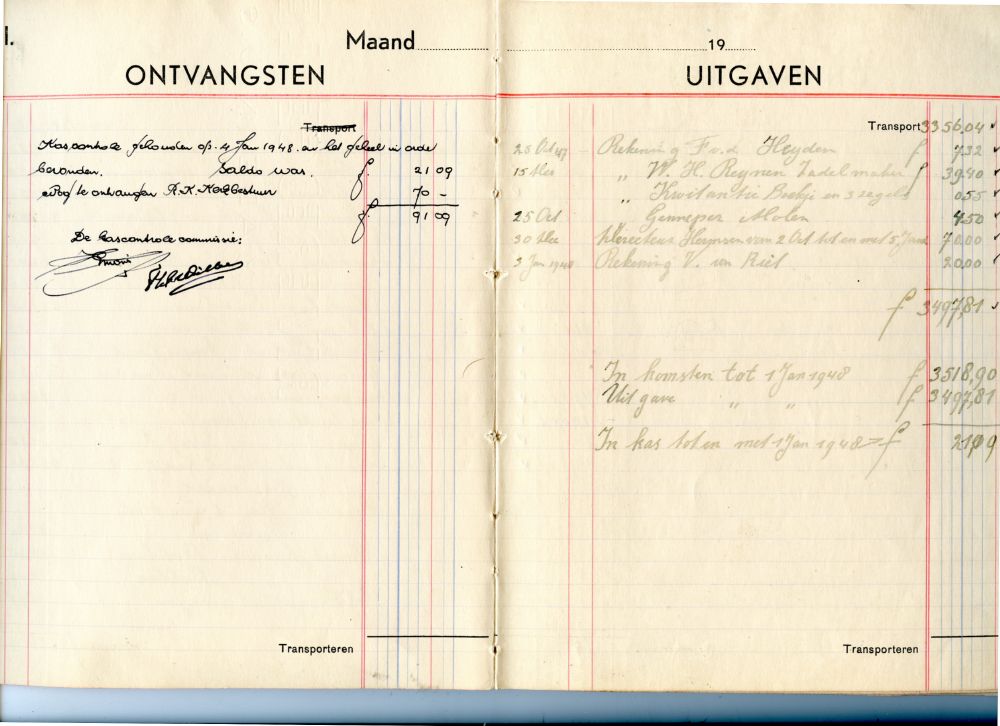 Maand
ONTVANGSTEN
Transport
Kascontrole gehouden op 4 Jan 1948 en het geheel in orde
bevonden. Saldo was. f. 21 09
nog te ontvangen R.K. Kerkbestuur 70 -
f. 91 09
De kascontrole commissie:
Transporteren
19
UITGAVEN
Transport 3356,04
25 Oct 47 Rekening F. v. d. Heyden f 7 32
15 Dec „ W. H. Reynen Zadelmaker f 39.40
„ Kwitantie Boekje en 3 zegels 0 55
25 Oct „ Genneper Molen 4 50
30 Dec Directeur van 2 Oct tot en met 5 Jan 70.00
3 Jan 1948 Rekening V. van Riel 20.00
f 3497,81
In komsten tot 1 Jan 1948 f 3518,90
Uit gave „ „ f 3497,81
In kas tot en met 1 Jan 1948 = f 21,09
Transporteren